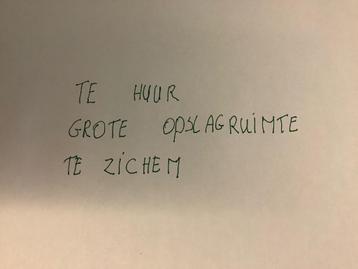 TE HUUR
GROTE OPSLAGRUIMTE
TE ZICHEM